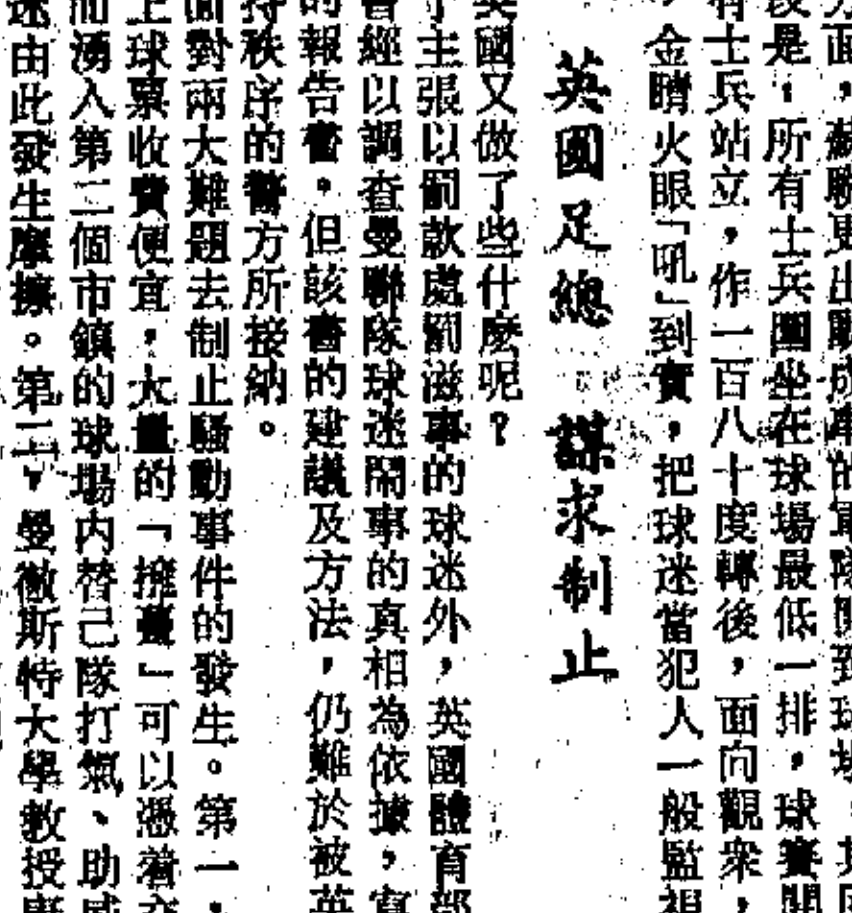 方面，蘇聯更出動成車的軍隊開到球場，其
段是，所有士兵圍坐在球場最低一排，球賽開
有士兵站立，作一百八十度轉後，面向觀衆，
，金睛火眼「吼」到實，把球迷當犯人一般監視
英國足總　謀求制止
英國又做了些什麽呢？
了主張以罰款處罰滋事的球迷外，英國體育部
曾經以調查曼聯隊球迷鬧事的真相為依據，寫
的報告書。但該書的建議及方法，仍難於被英
持秩序的警方所接納。
面對兩大難題去制止騷動事件的發生。第一，
上球票收費便宜，大量的「擁躉」可以憑着交
而湧入第二個市鎮的球場內替己隊打氣、助威
迷由此發生摩擦。第二，曼徹斯特大學教授